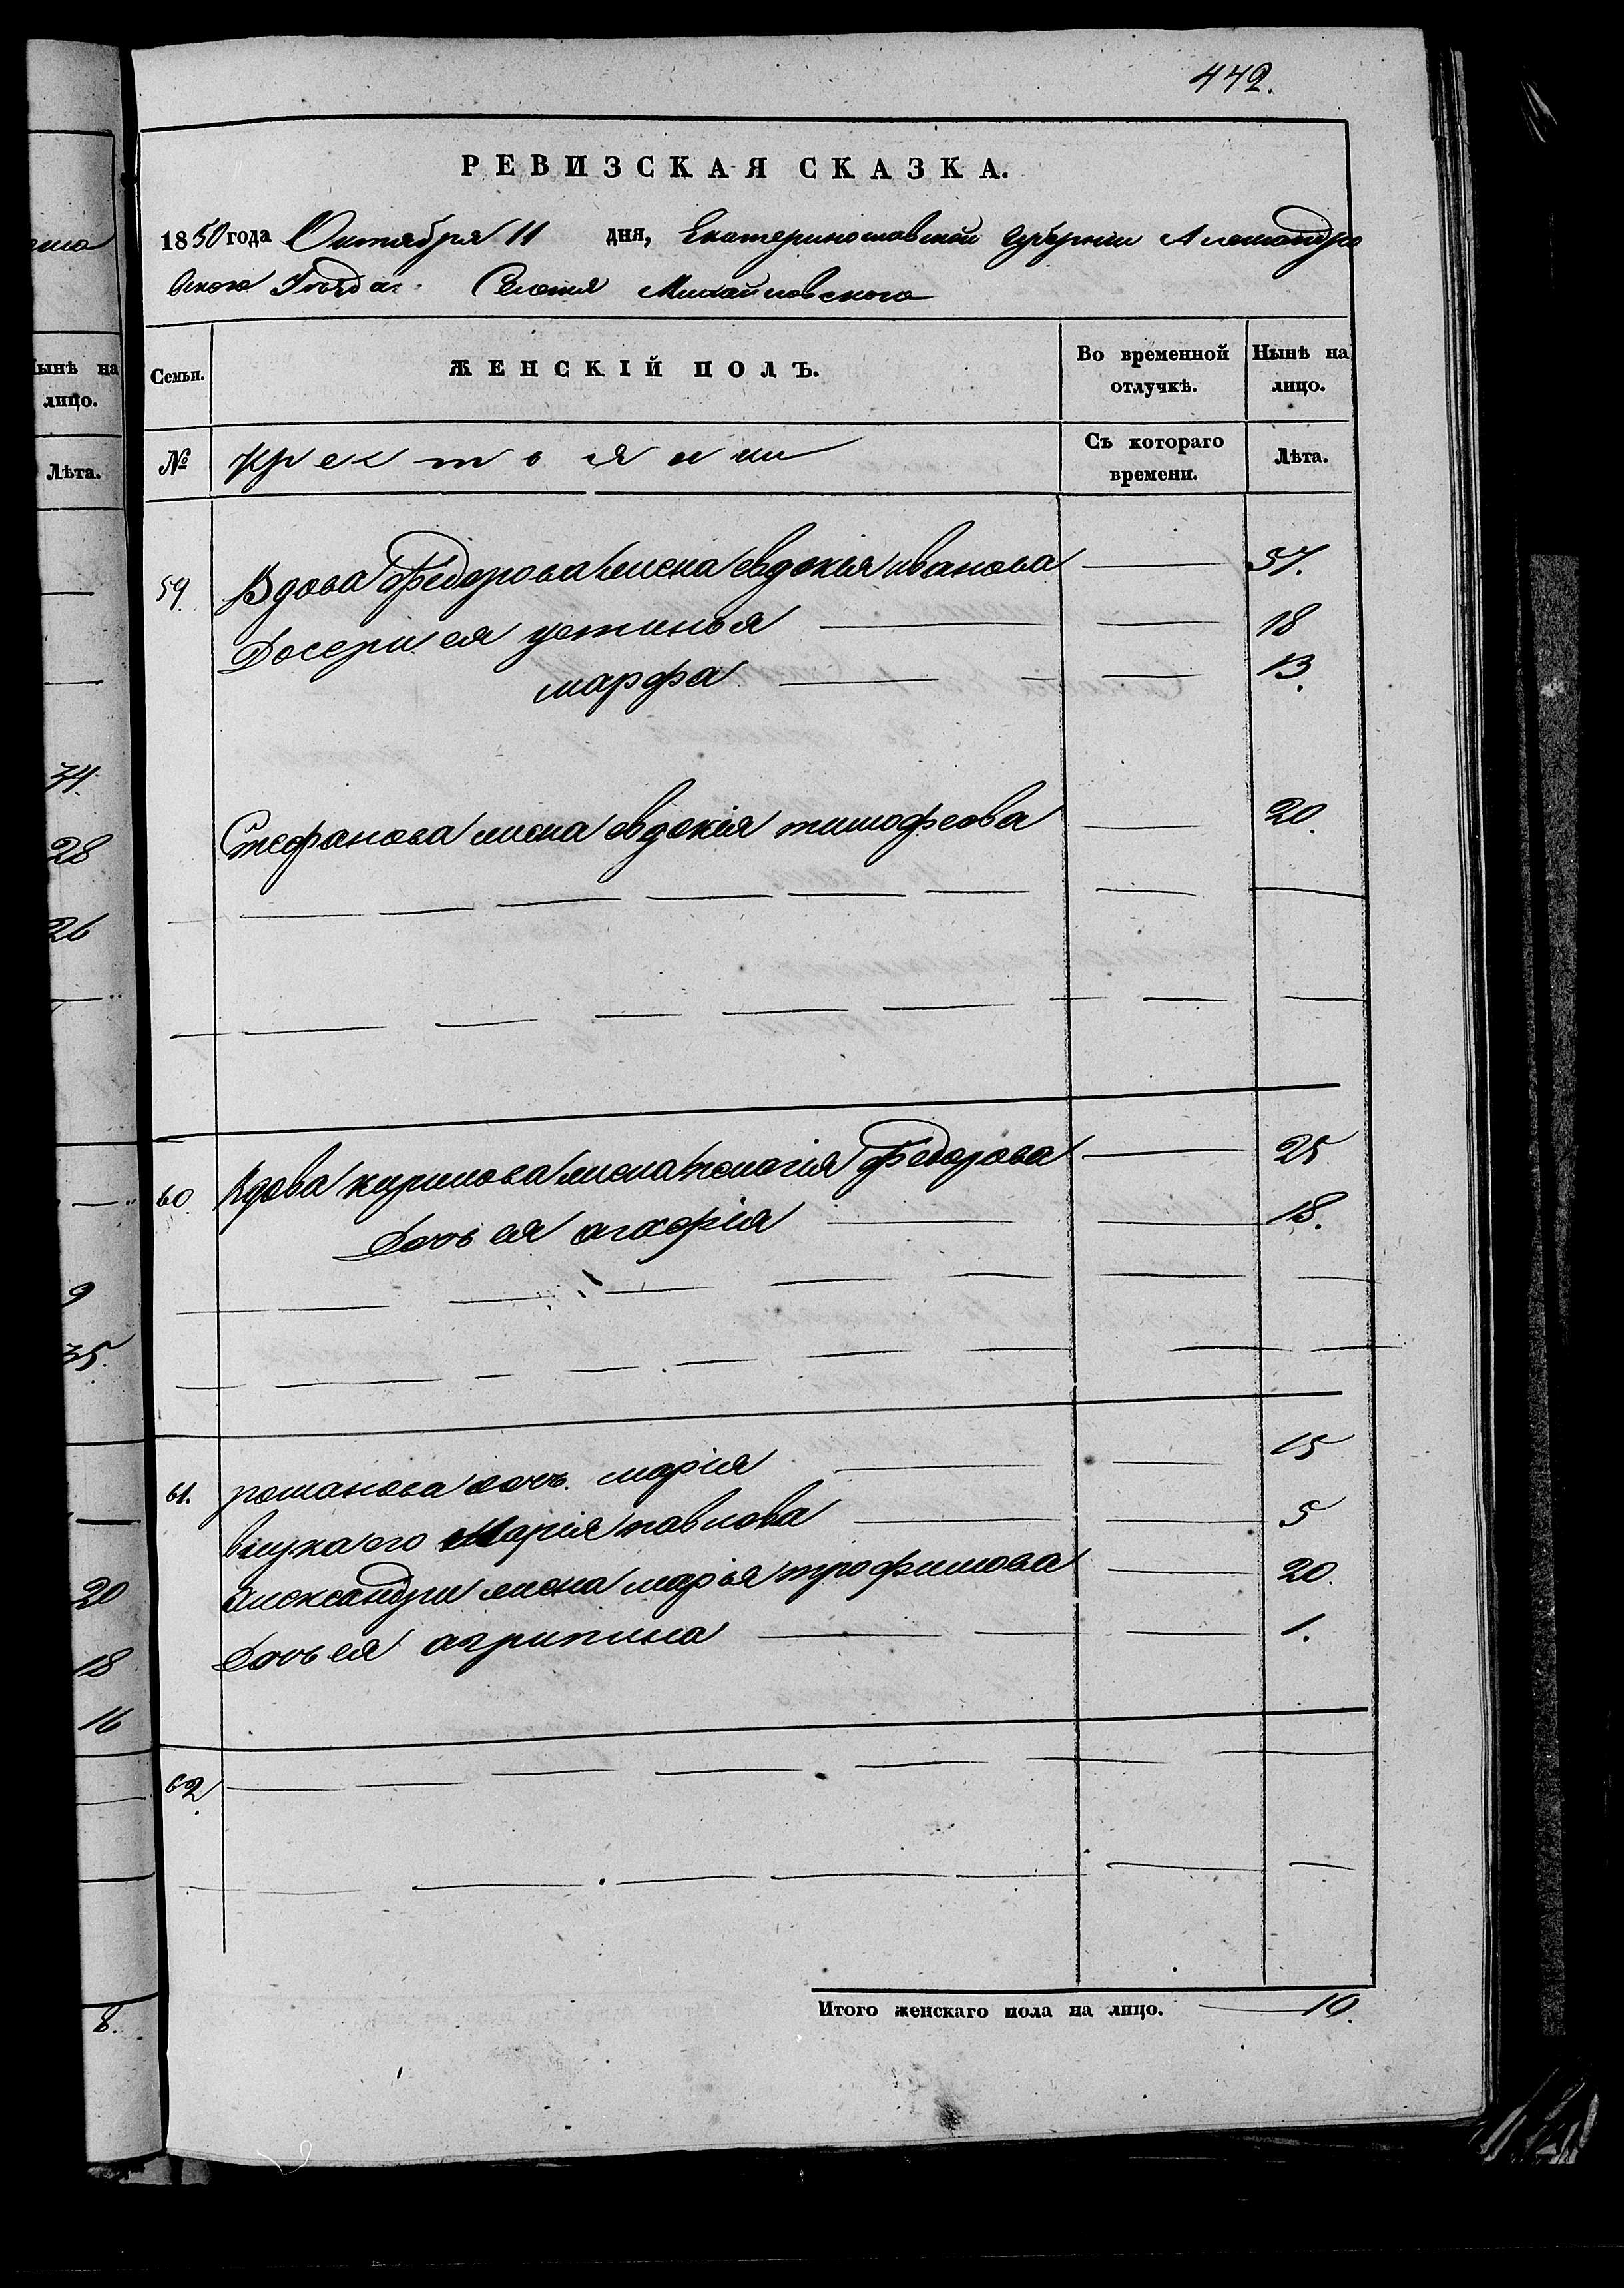 ема
ынѣ на
лицо.
Лѣта.
34.
28
26
9
35.
20
18
16
8.
442.
РЕВИЗСКАЯ СКАЗКА.
1850 года Октября 11 дня, Екатеринославской Губерніи Александро
вского Уезда Селения Михайловского
Семьи. ЖЕНСКІЙ ПОЛЪ. Во временной отлучкѣ. Нынѣ на лицо.
№ Крестьяни Съ котораго времени. Лѣта.
59. Вдова Федорова жена евдокия иванова 57.
Дочери ея устинья 18
марфа 13.
Стефанова жена евдокія тимофеова 20.
60. Вдова кирилова жена пелагія Федорова 25
Дочь ея агафія 18.
61. романова дочь марія 15
внука его Марія павлова 5
Александры жена марья трофимова 20.
Дочь ея агрипина 1.
62.
Итого женскаго пола на лицо. 10.